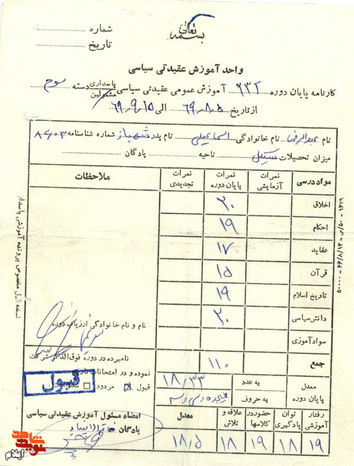 بسمه تعالی
شماره
تاریخ
واحد آموزش عقیدتی سیاسی
کارنامه پایان دوره ۶۳۲ آموزش عمومی عقیدتی سیاسی پاسداری دسته سوم
از تاریخ ۶۹/۸/۵ الی ۶۹/۹/۱۵
نام عبدالرضا نام خانوادگی اسماعیلی نام پدر شهباز شماره شناسنامه ۸۶۰۳
میزان تحصیلات سیکل ناحیه پادگان
مواد درسی نمرات آزمایشی نمرات پایان دوره نمرات تجدیدی ملاحظات
اخلاق ۲۰
احکام ۱۹
عقاید ۱۷
قرآن ۱۵
تاریخ اسلام ۱۹
دانش سیاسی ۲۰
سوادآموزی
جمع ۱۱۰
معدل پایان دوره به عدد ۱۸/۳۳
به حروف هیجده و سی و سه
نام و نام خانوادگی ارزیاب دوره
نامبرده در دوره فوق الذکر شرکت
نموده و در امتحانات
قبول مردود
قبول
رفتار آموزشی توان یادگیری حضور در کلاسها علاقه و تلاش معدل
۱۹ ۱۸ ۱۹ ۱۸ ۱۸/۵
امضاء مسئول آموزش عقیدتی سیاسی
پادگان
نسخه اول مخصوص پرونده آموزشی پاسدار